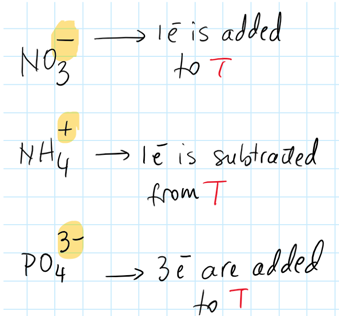 NO₃⁻ → 1ē is added
to T
NH₄⁺ → 1ē is subtracted
from T
PO₄³⁻ → 3ē are added
to T